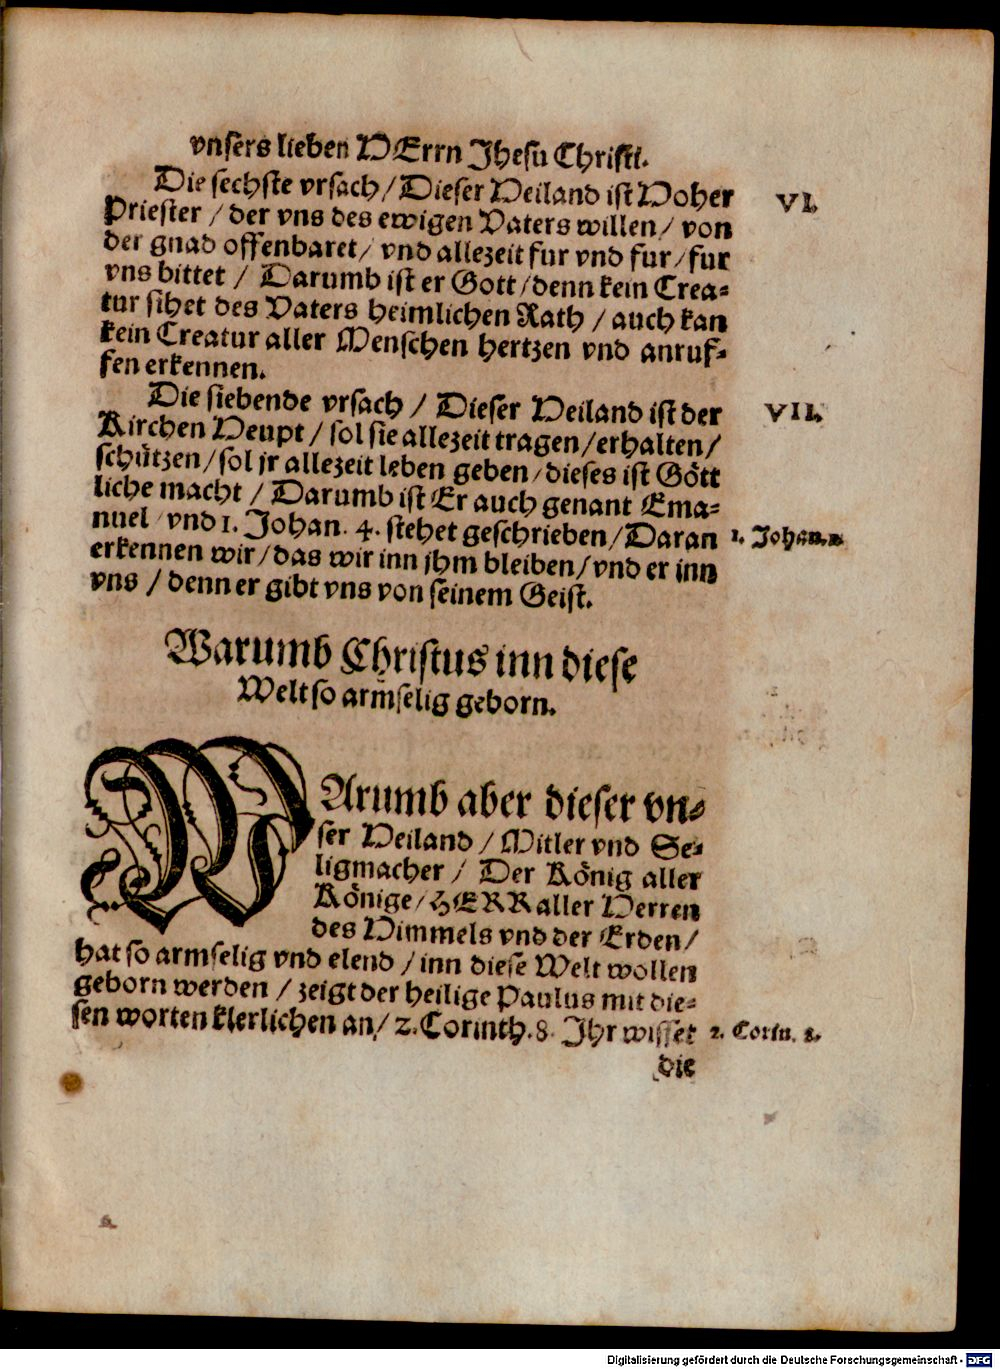 vnsers lieben HErrn Jhesu Christi.
Die sechste vrsach / Dieser Heiland ist Hoher
VI.
Priester / der vns des ewigen Vaters willen / von
der gnad offenbaret / vnd allezeit fur vnd fur / fur
vns bittet / Darumb ist er Gott / denn kein Crea-
tur sihet des Vaters heimlichen Rath / auch kan
kein Creatur aller Menschen hertzen vnd anruf-
fen erkennen.
Die siebende vrsach / Dieser Heiland ist der
VII.
Kirchen Heupt / sol sie allezeit tragen / erhalten /
schützen / sol jr allezeit leben geben / dieses ist Gött
liche macht / Darumb ist Er auch genant Ema-
nuel / vnd 1. Johan. 4. stehet geschrieben / Daran
1. Johan.
erkennen wir / das wir inn jhm bleiben / vnd er inn
vns / denn er gibt vns von seinem Geist.
Warumb Christus inn diese
Welt so armselig geborn.
WArumb aber dieser vn-
ser Heiland / Mitler vnd Se-
ligmacher / Der König aller
Könige / HERR aller Herren
des Himmels vnd der Erden /
hat so armselig vnd elend / inn diese Welt wollen
geborn werden / zeigt der heilige Paulus mit die-
sen worten klerlichen an / 2. Corinth. 8. Jhr wisset
2. Corin. 8.
die
Digitalisierung gefördert durch die Deutsche Forschungsgemeinschaft - DFG